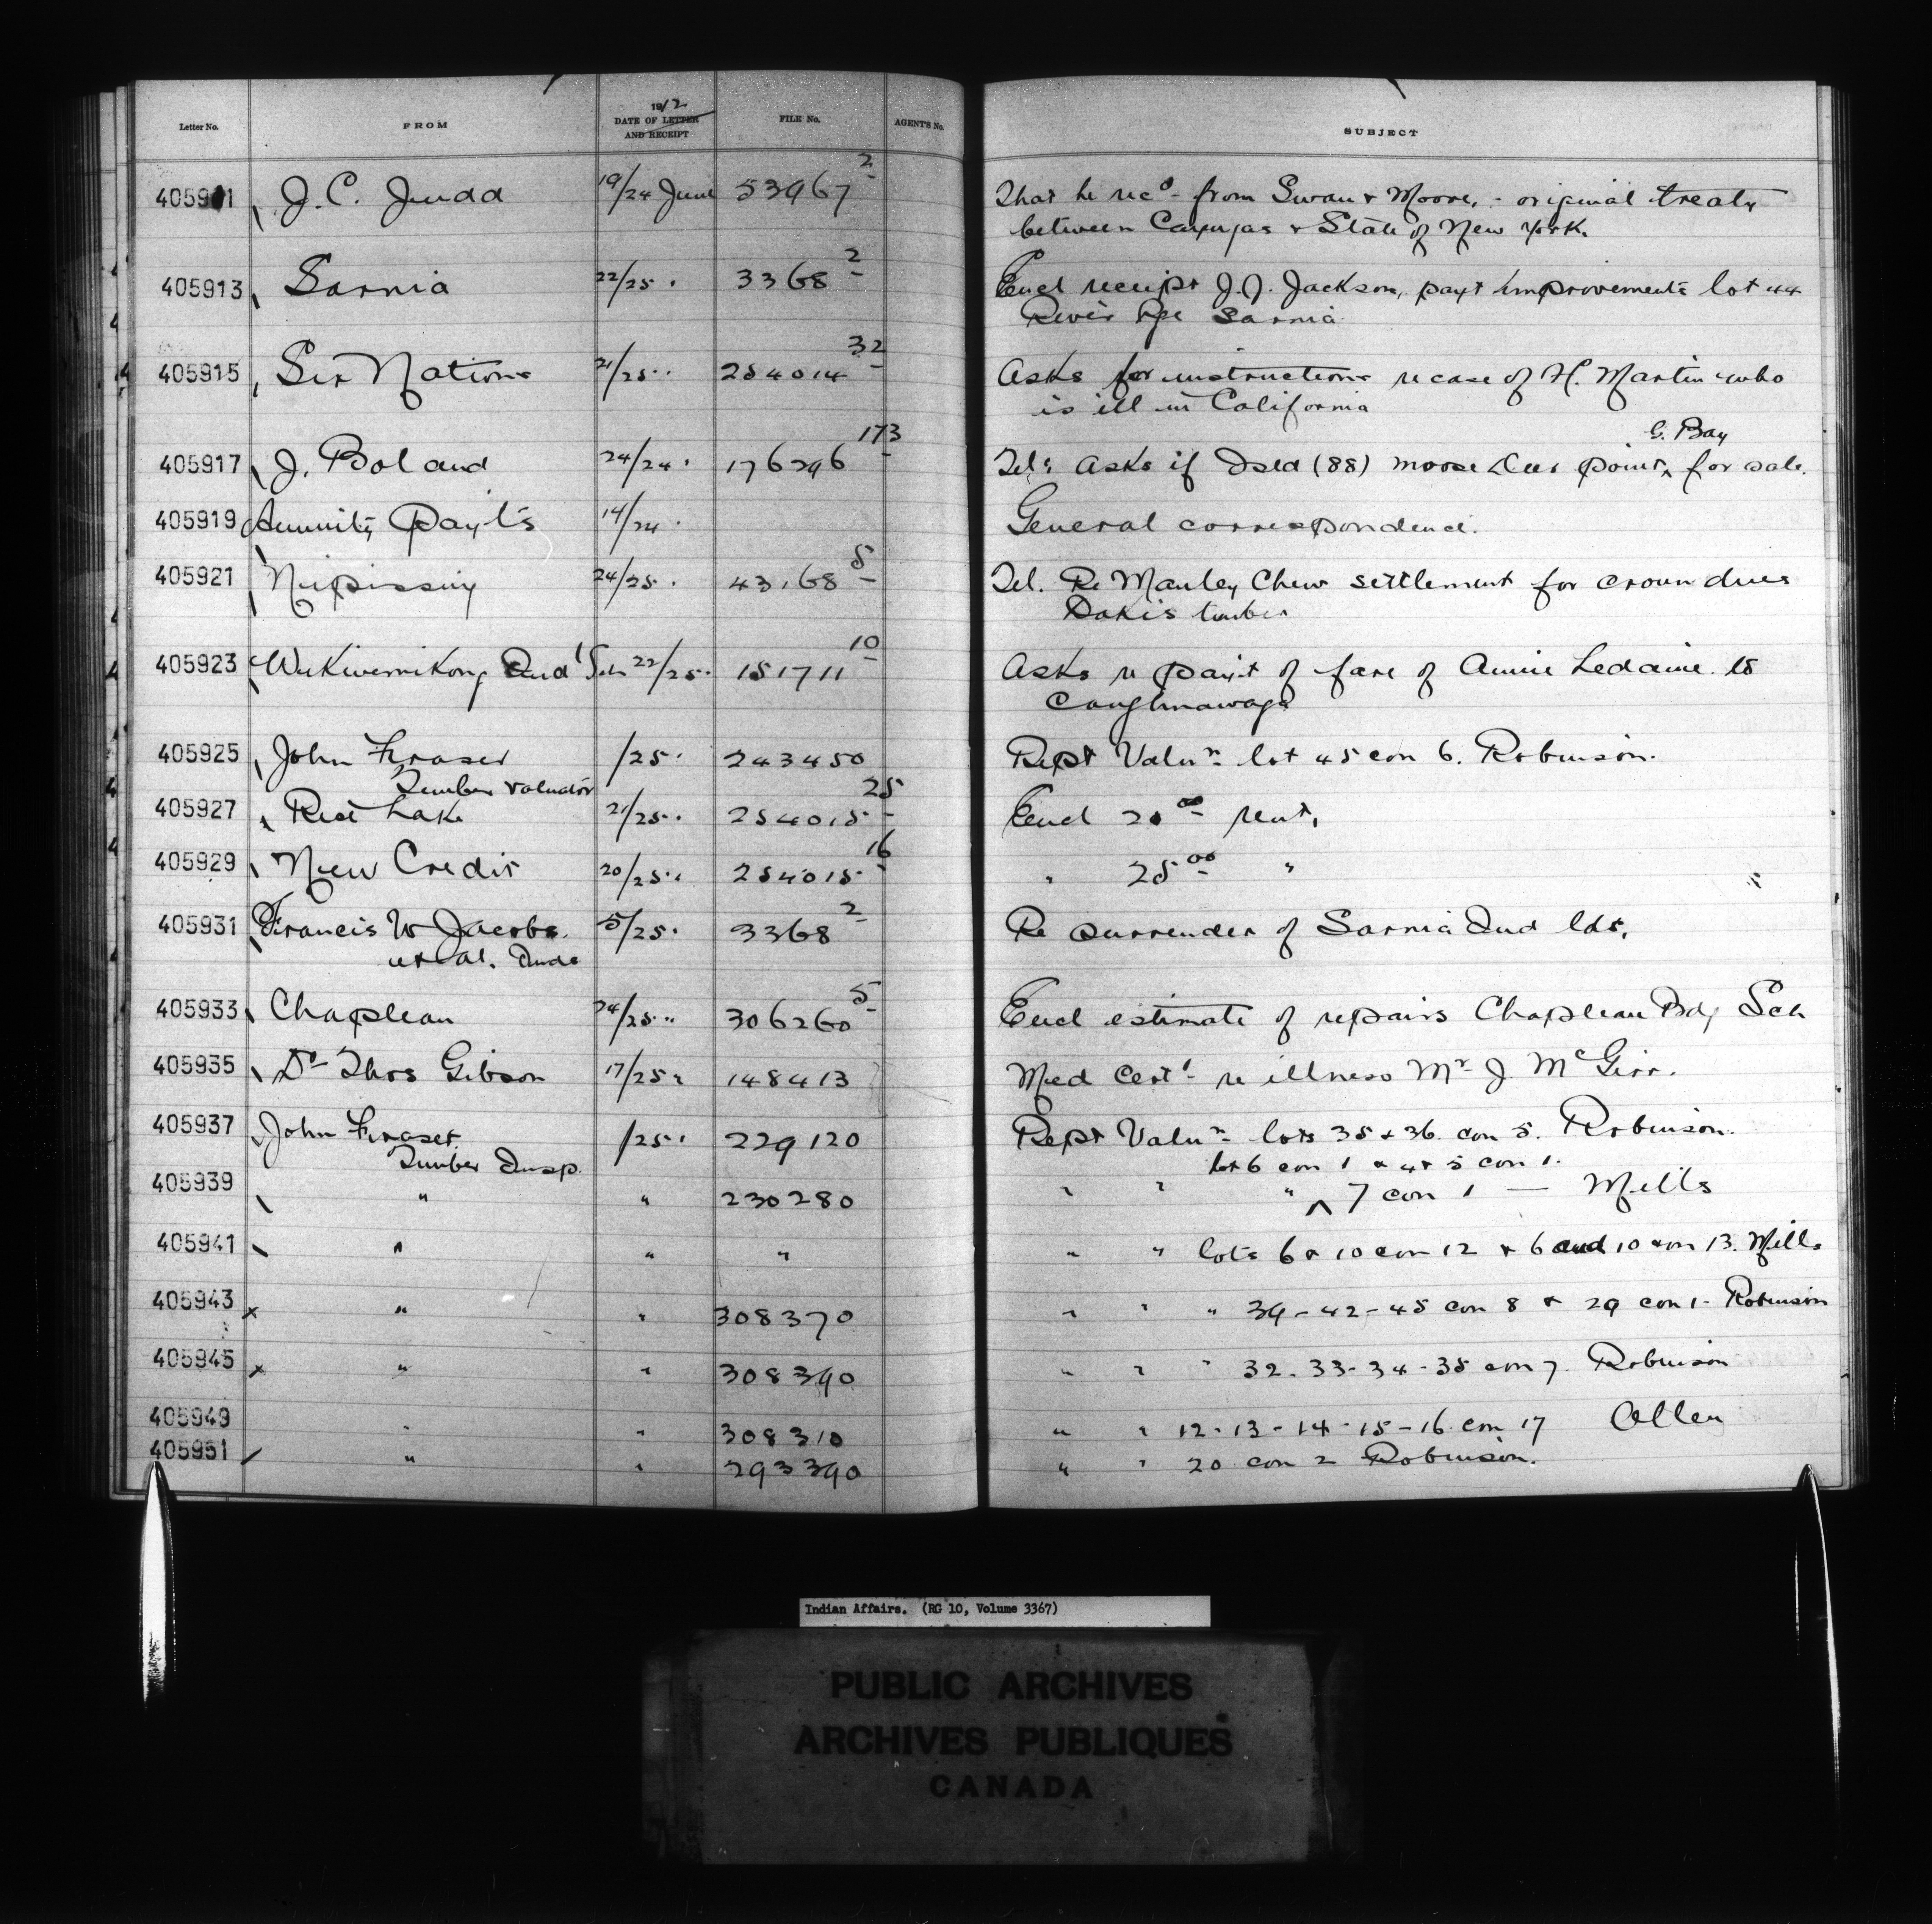 Letter No. FROM 1912 DATE OF LETTER AND RECEIPT FILE No. AGENT'S No. SUBJECT
405911 J. C. Judd 19/24 June 53967-2 That he recd from Swan & Moore, - original treaty
between Cayugas & State of New York.
405913 Sarnia 22/25 " 3368-2 Encl receipt J.J. Jackson, payt improvements lot 44
River Rge Sarnia
405915 Six Nations 21/25 " 254014-32 Asks for instructions re case of H. Martin who
is ill in California
405917 J. Boland 24/24 " 176296-173 Tel: asks if Isld (88) moose Deer point, G. Bay for sale.
405919 Annuity Payts 14/24 " General correspondence.
405921 Nipissing 24/25 " 43168-5 Tel. Re Manley Chew settlement for crown dues
Dokis timber
405923 Wikwemikong Indl Sch 22/25 " 151711-10 Asks re payt of fare of Annie Ledaine to
Caughnawaga
405925 John Fraser /25 " 243450 Rept Valun lot 45 con 6. Robinson.
Timber Valuator
405927 Rice Lake 21/25 " 254015-25 Encl 20.00 rent,
405929 New Credit 20/25 " 254015-16 " 25.00 "
405931 Francis W Jacobs 5/25 " 3368-2 Re surrender of Sarnia Ind lds,
et al. Inds
405933 Chapleau 24/25 " 306260-5 Encl estimate of repairs Chapleau Bdg Sch
405935 Dr Thos Gibson 17/25 " 148413 Med Cert re illness Mr J. McGirr.
405937 John Fraser /25 " 229120 Rept Valun lots 35 & 36 con 5. Robinson.
Timber Insp. lot 6 con 1 & 4 & 5 con 1.
405939 " " 230280 " " " ^ 7 con 1 — Mills
405941 " " " " " lots 6 & 10 con 12 & 6 and 10 con 13. Mills
405943 x " " 308370 " " " 39-42-45 con 8 & 29 con 1- Robinson
405945 x " " 308390 " " " 32-33-34-35 con 7. Robinson
405949 " " 308310 " " 12-13-14-15-16 con 17 Allen
405951 " " 293390 " " 20 con 2 Robinson.
Indian Affairs. (RG 10, Volume 3367)
PUBLIC ARCHIVES
ARCHIVES PUBLIQUES
CANADA